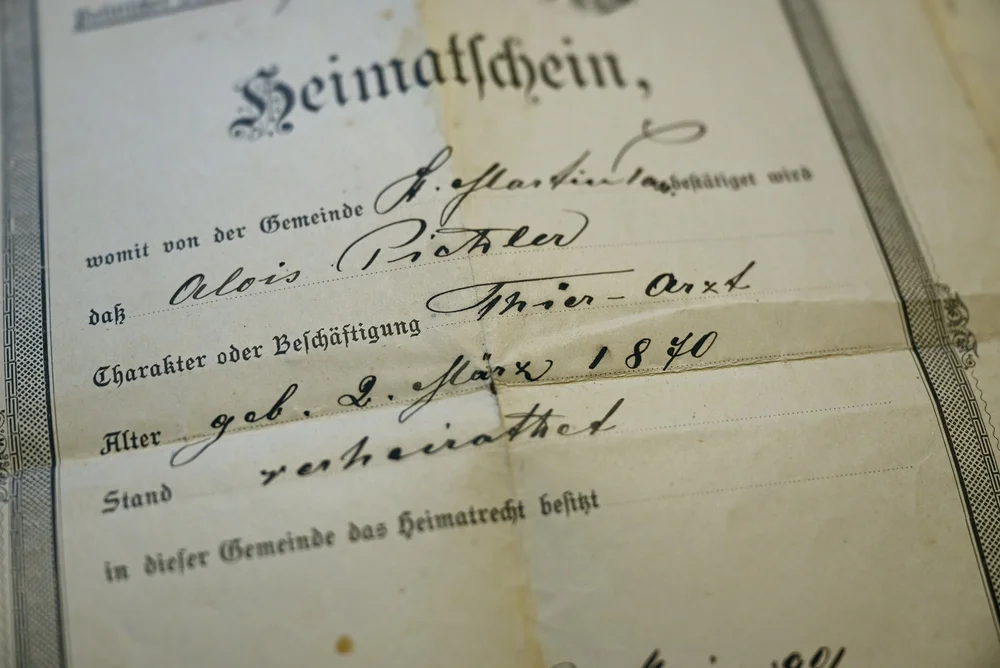 Heimatschein,
womit von der Gemeinde St. Martin bestätiget wird
daß Alois Pichler
Charakter oder Beschäftigung Thier-Arzt
Alter geb. 2. März 1870
Stand verheirathet
in dieser Gemeinde das Heimatrecht besitzt